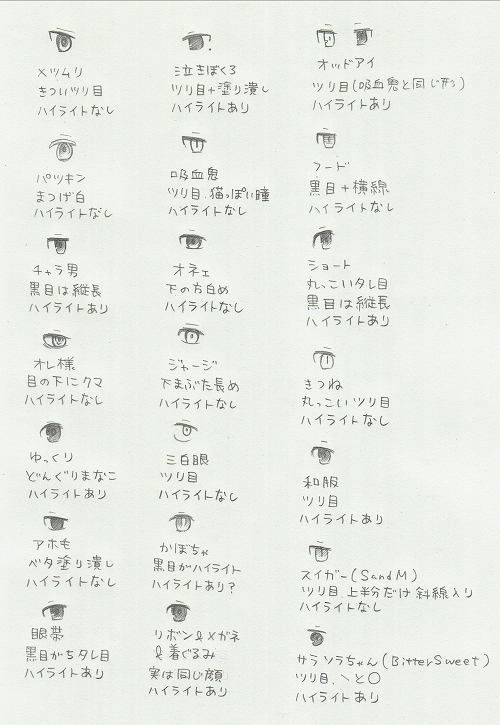 メツムリ
きついツリ目
ハイライトなし
パツキン
まつげ白
ハイライトなし
チャラ男
黒目は縦長
ハイライトあり
オレ様
目の下にクマ
ハイライトなし
ゆっくり
どんぐりまなこ
ハイライトあり
アホ毛
ベタ塗り潰し
ハイライトなし
眼帯
黒目がちタレ目
ハイライトあり
泣きぼくろ
ツリ目+塗り潰し
ハイライトあり
吸血鬼
ツリ目、猫っぽい瞳
ハイライトなし
オネェ
下の方白め
ハイライトなし
ジャージ
下まぶた長め
ハイライトなし
三白眼
ツリ目
ハイライトなし
かぼちゃ
黒目がハイライト
ハイライトあり?
リボン&メガネ
&着ぐるみ
実は同じ顔
ハイライトあり
オッドアイ
ツリ目(吸血鬼と同じ形)
ハイライトあり
フード
黒目+横線
ハイライトなし
ショート
丸っこいタレ目
黒目は縦長
ハイライトあり
きつね
丸っこいツリ目
ハイライトなし
和服
ツリ目
ハイライトあり
スイガー(SandM)
ツリ目、上半分だけ斜線入り
ハイライトなし
サラソラちゃん(BitterSweet)
ツリ目、\と○
ハイライトあり